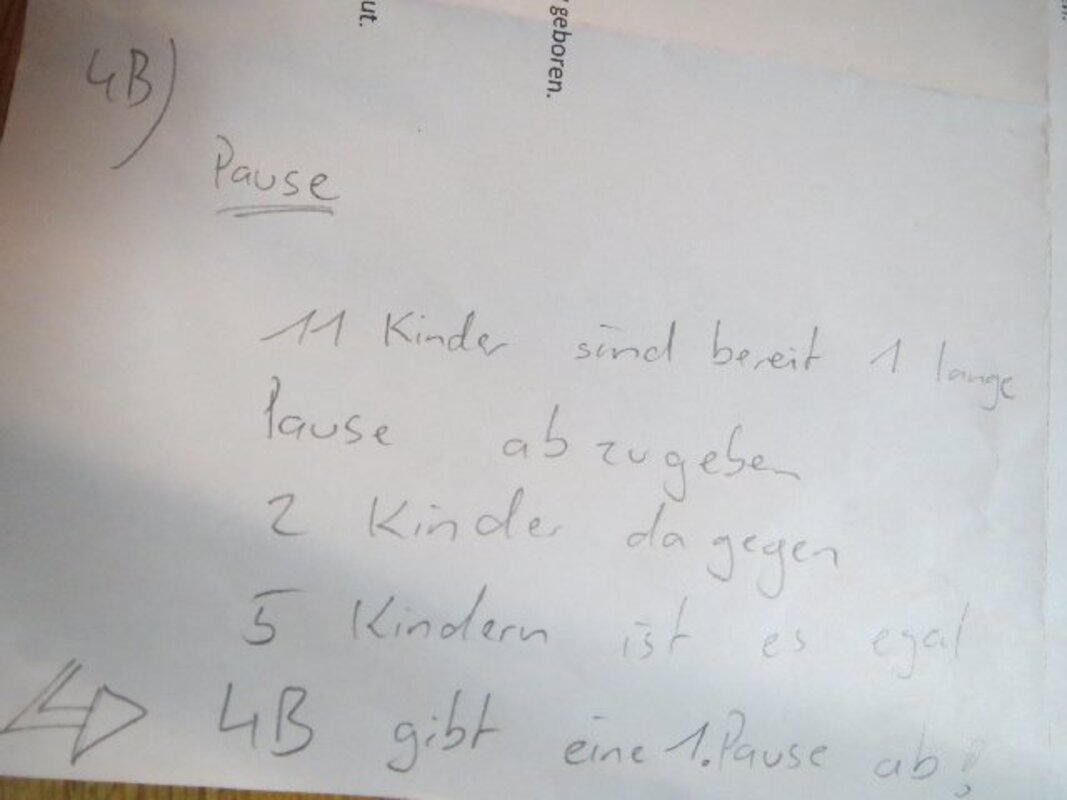 ut.
geboren.
4B)
Pause
11 Kinder sind bereit 1 lange
Pause abzugeben
2 Kinder dagegen
5 Kindern ist es egal
4B gibt eine 1. Pause ab!